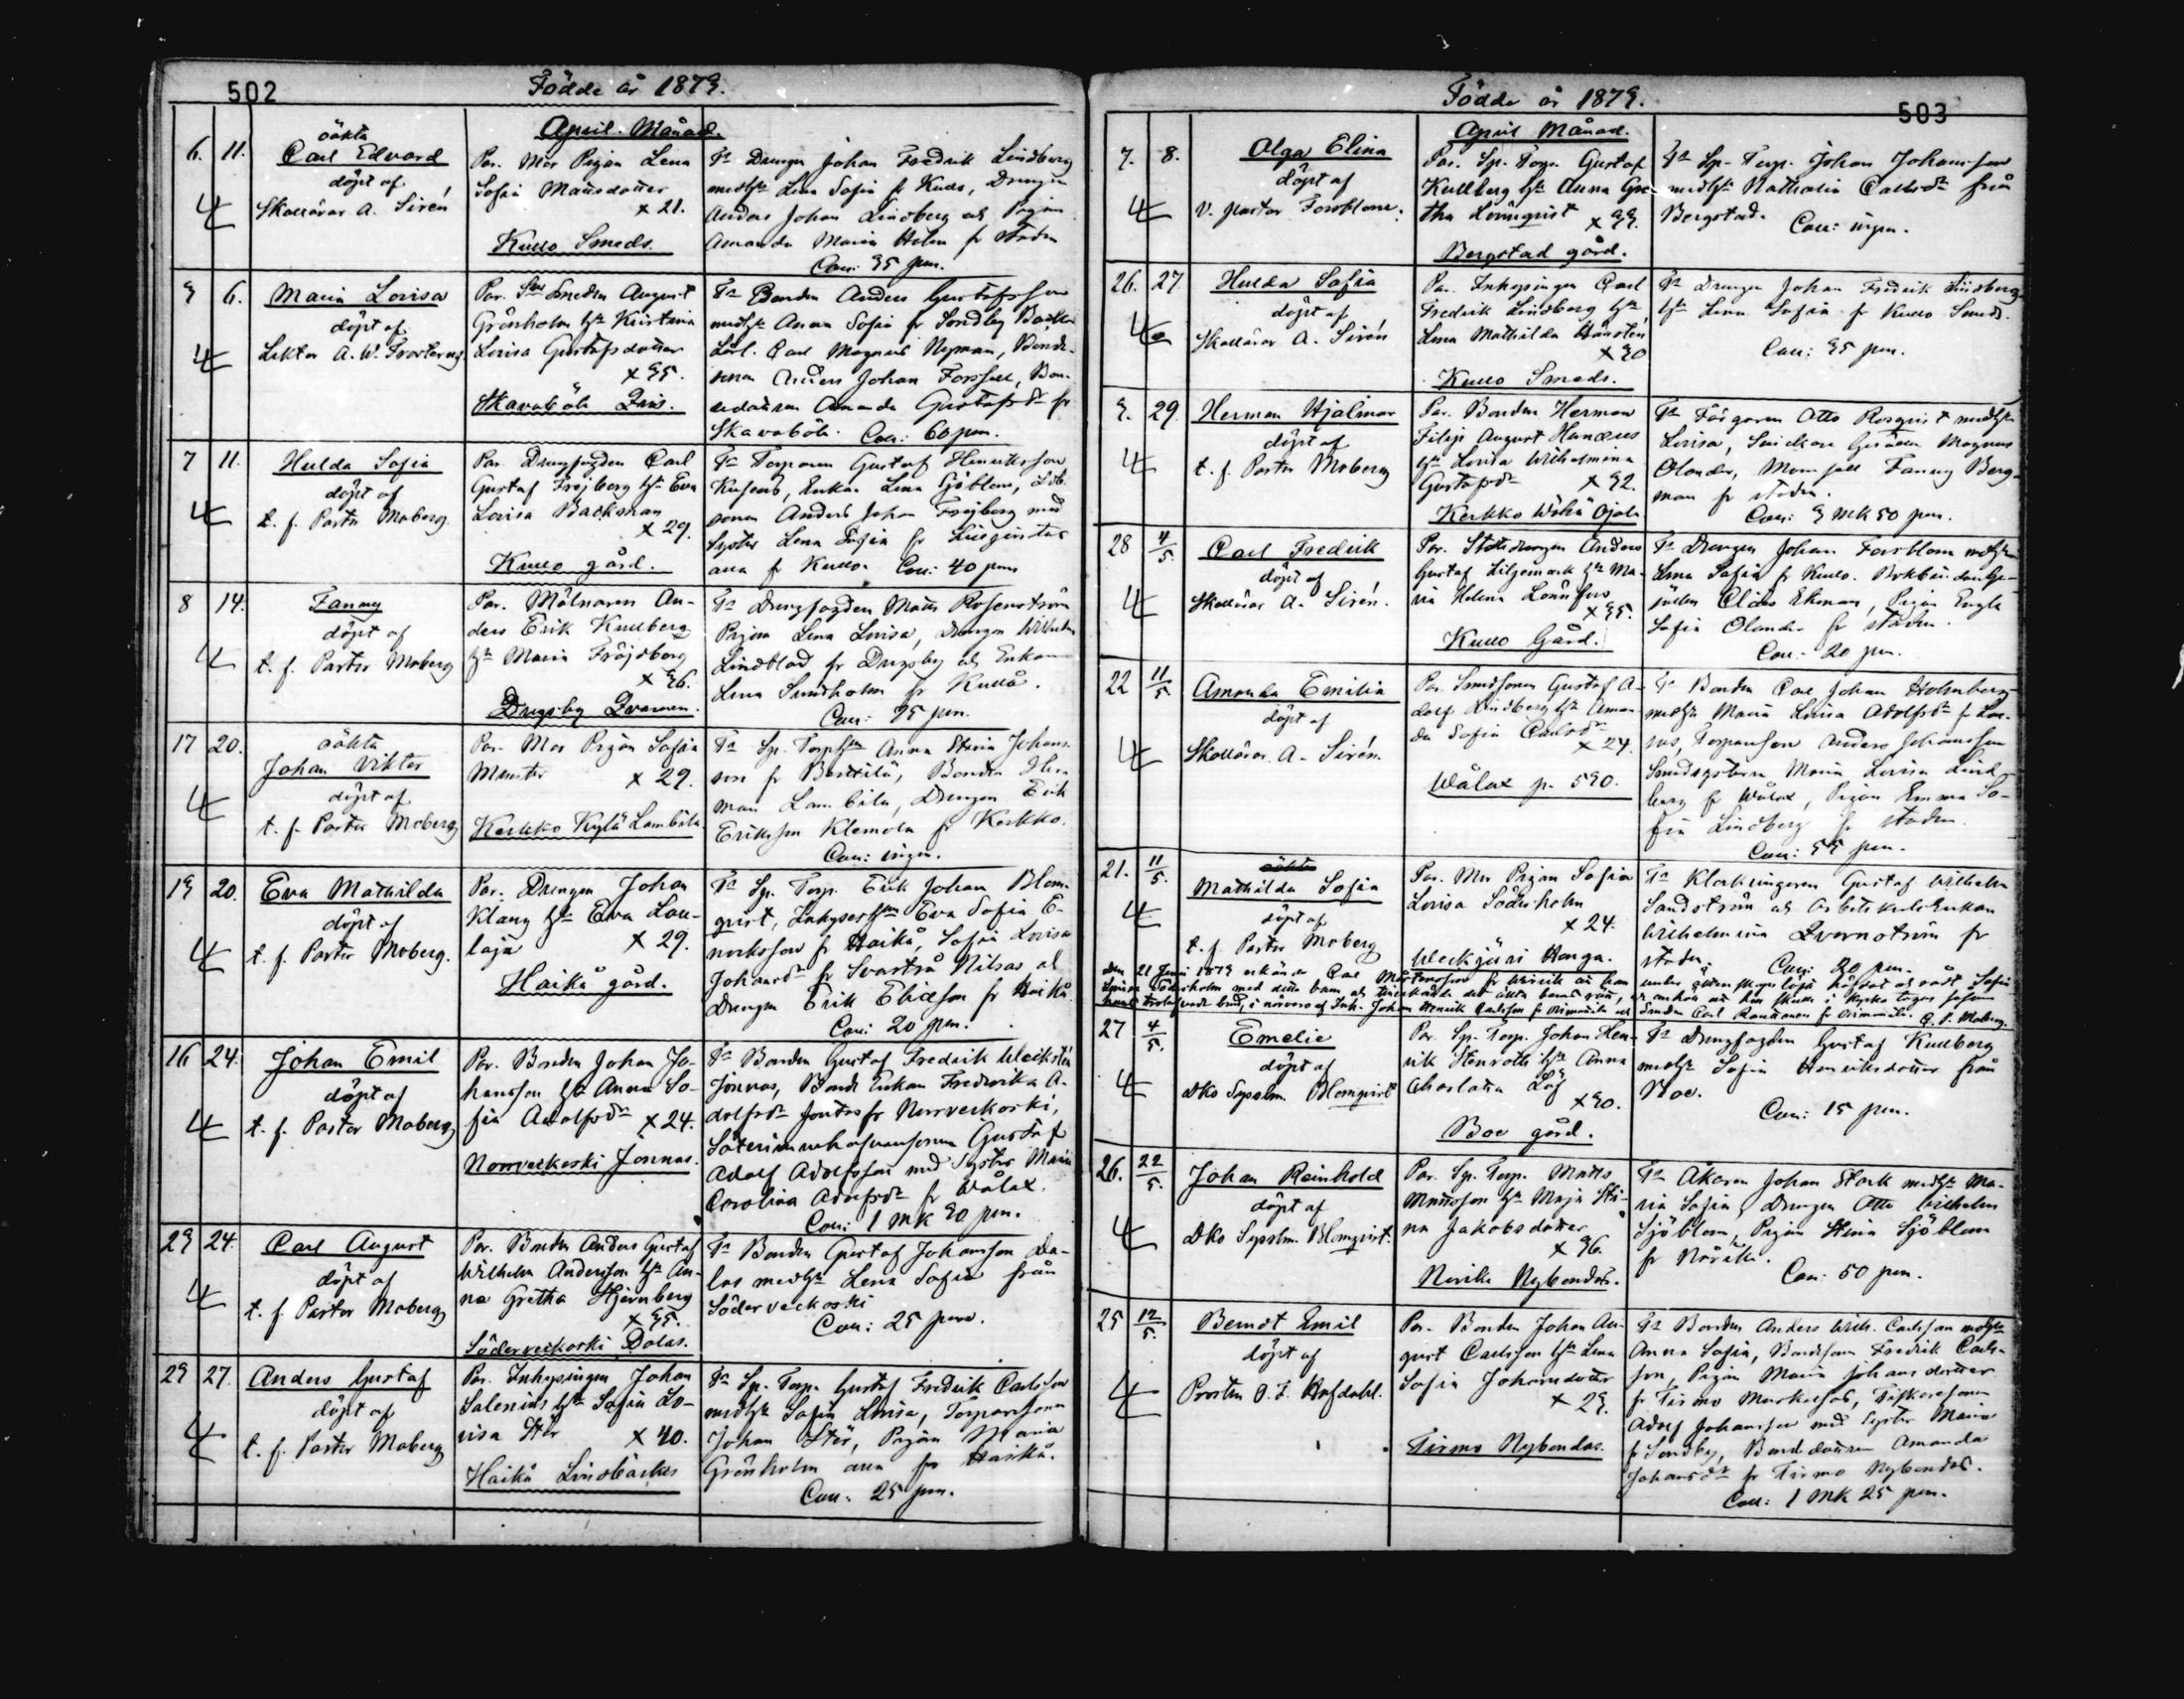 502
Födde år 1879.
April Månad.
6. 11.
oäkta
Carl Edvard
döpt af
Skollärar A. Sirén
Par. Mor Pigan Lena
Sofia Mattsdotter
x 21.
Kullo Smeds.
Fr Drengen Johan Fredrik Lindberg
medhu Lena Sofia fr Kullo, Drengen
Anders Johan Lindberg och Pigan
Amanda Maria Holm fr staden
Coll: 35 pen.
3 6.
Maria Lovisa
döpt af
Lektor A. W.
Par. Smeden August
Grönholm hu Kristina
Lovisa Gustafsdotter
x 35.
Skavaböle
Fr Bonden Anders Gustafsson
medhu Anna Sofia fr Sondby
Carl Magnus Nyman, Bonde-
sonen Anders Johan Forssell, Bon-
dedottren Amanda Gustafsdr fr
Skavaböle. Coll: 60 pen.
7 11.
Hulda Sofia
döpt af
t. f. Pastor Moberg
Par. Drengfogden Carl
Gustaf Frejberg hu Eva
Lovisa Backman
x 29.
Kullo gård.
Fr Torparen Gustaf Henriksson
Enkan Lena Sjöblom,
sonen Anders Johan Frejberg med
Syster Lena Sofia fr
alla fr Kullo. Coll: 40 pen.
8 14.
Fanny
döpt af
t. f. Pastor Moberg
Par. Mölnaren An-
ders Erik Kullberg
hu Maria Fröjdberg
x 36.
Drägsby Qvarnen.
Fr Drengfogden Matts Rosenström
Pigan Lena Lovisa, Drengen Wilhelm
Lindblad fr Drägsby och Enkan
Lena Sundholm fr Kullo.
Coll: 75 pen.
17 20.
oäkta
Johan Viktor
döpt af
t. f. Pastor Moberg
Par. Mor Pigan Sofia
Munter x 29.
Kerkko Kylä Lambila.
Fr Sp. Torphun Anna Stina Johans-
son fr Bostilä, Bonden Her-
man Lambila, Drengen Erik
Eriksson Klemola fr Kerkko.
Coll: ingen.
19 20.
Eva Mathilda
döpt af
t. f. Pastor Moberg.
Par. Drengen Johan
Klang hu Eva Lou-
laja x 29.
Haikå gård.
Fr Sp. Torp. Erik Johan Blom-
qvist, Inhyseshun Eva Sofia E-
neroksson fr Haikå, Sofia Lovisa
Johansdr fr Svartså Nilsas och
Drengen Erik Eliasson fr Haikå.
Coll: 20 pen.
16 24.
Johan Emil
döpt af
t. f. Pastor Moberg
Par. Bonden Johan Jo-
hansson hu Anna So-
fia Adolfsdr x 24.
Norrveckoski Jonnas.
Fr Bonden Gustaf Fredrik Weckstén
Jonnas, Bonde Enkan Fredrika A-
dolfsdr Jontas fr Norrveckoski,
Säteriinnehafvaresonen Gustaf
Adolf Adolfsson med Syster Maria
Carolina Adolfsdr fr Wålax.
Coll: 1 mk 30 pen.
23 24.
Carl August
döpt af
t. f. Pastor Moberg
Par. Bonden Anders Gustaf
Wilhelm Andersson hu An-
na Gretha Stjernberg
x 35.
Söderveckoski Dalas.
Fr Bonden Gustaf Johansson Da-
las medhu Lena Sofia från
Söderveckoski
Coll: 25 pen.
23 27.
Anders Gustaf
döpt af
t. f. Pastor Moberg
Par. Inhysingen Johan
Salenius hu Sofia Lo-
visa Stör x 40.
Haikå Lindbackes
Fr Sp. Torp. Gustaf Fredrik Carlsson
medhu Sofia Lovisa, Torparesonen
Johan Stör, Pigan Maria
Grönholm alla fr Haikå.
Coll: 25 pen.
Födde år 1879.
503
April Månad.
7. 8.
Olga Elina
döpt af
V. pastor Forsblom.
Par. Sp. Torp. Gustaf
Kullberg hu Anna Gre-
tha Lönnqvist x 33.
Bergstad gård.
Fr Sp. Torp. Johan Johansson
medhu Nathalia Carlsdr från
Bergstad. Coll: ingen.
26. 27.
Hulda Sofia
döpt af
Skollärar A. Sirén
Par. Inhysingen Carl
Fredrik Lindberg hu
Lena Mathilda
x 30
Kullo Smeds.
Fr Drengen Johan Fredrik Lindberg
hu Lena Sofia fr Kullo Smeds.
Coll: 35 pen.
9. 29.
Herman Hjalmar
döpt af
t. f. Pastor Moberg
Par. Bonden Herman
Filip August
hu Lovisa Wilhelmina
Gustafsdr x 32.
Kerkko Wähä Ojala
Fr Färgaren Otto Rosqvist medhu
Lovisa, Snickare Gesällen Magnus
Olander, Mamsell Fanny Berg-
man fr staden.
Coll: 3 mk 50 pen.
28 4/5.
Carl Fredrik
döpt af
Skollärar A. Sirén.
Par. Stattdrengen Anders
Gustaf Liljemark hu Ma-
ria Helena Lönnfors
x 35.
Kullo Gård.
Fr Drengen Johan Forsblom medhu
Lena Sofia fr Kullo. Bokbindare Ge-
sällen Elias Ekman, Pigan Engla
Sofia Olander fr staden.
Coll: 20 pen.
22 11/5
Amanda Emilia
döpt af
Skollärar A. Sirén.
Par. Smedsonen Gustaf A-
dolf Lindberg hu Aman-
da Sofia Carlsdr
x 24.
Wålax p. 590.
Fr Bonden Carl Johan Holmberg
medhu Maria Lovisa Adolfsdr fr
Torparesonen Anders Johansson
Maria Lovisa Lind-
berg fr Wålax, Pigan Emma So-
fia Lindberg fr staden.
Coll: 55 pen.
21. 11/5.
oäkta
Mathilda Sofia
döpt af
t. f. Pastor Moberg
Par. Mor Pigan Sofia
Lovisa Söderholm
x 24.
Weckjärvi Honga.
Fr Klockringaren Gustaf Wilhelm
Sandström och Arbetskarls Enkan
Wilhelmina Qvarnström fr
staden. Coll: 20 pen.
den 21 Juni 1879 erkände Carl Mårtensson fr att han under äktenskaps löfte häfdat och rådt Sofia
Lovisa Söderholm med detta barn och tillerkände det äkta barns rätt, och
i närvaro af Inh. Johan Henrik Carlsson fr och Smeden Carl G. I. Moberg.
27 4/5.
Emelie
döpt af
Dko Sysslm. Blomqvist
Par. Sp. Torp. Johan Hen-
rik Stenroth hu Anna
Charlotta Löf
x 30.
Boe gård.
Fr Drengfogden Gustaf Kullberg
medhu Sofia Henriksdotter från
Boe.
Coll: 15 pen.
26. 22/5.
Johan Reinhold
döpt af
Dko Sysslm. Blomqvist.
Par. Sp. Torp. Matts
Mattsson hu Maja Sti-
na Jakobsdotter
x 36.
Norike Nybondas.
Fr Åkaren Johan Stark medhu Ma-
ria Sofia, Drengen Otto Wilhelm
Sjöblom, Pigan Stina Sjöblom
fr Norike.
Coll: 50 pen.
25 12/5.
Berndt Emil
döpt af
Prosten O. I. Hofdahl.
Par. Bonden Johan Au-
gust Carlsson hu Lena
Sofia Johansdotter
x 29.
Tirmo Nybondas.
Fr Bonden Anders Wilh. Carlsson medhu
Anna Sofia, Bondeson Fredrik Carls-
son, Pigan Maria Johansdotter
fr Tirmo Markusas, Fiskaresonen
Adolf Johansson med Syster Maria
fr Sondby, Bondedottren Amanda
Johansdr fr Tirmo Nybondas.
Coll: 1 mk 25 pen.